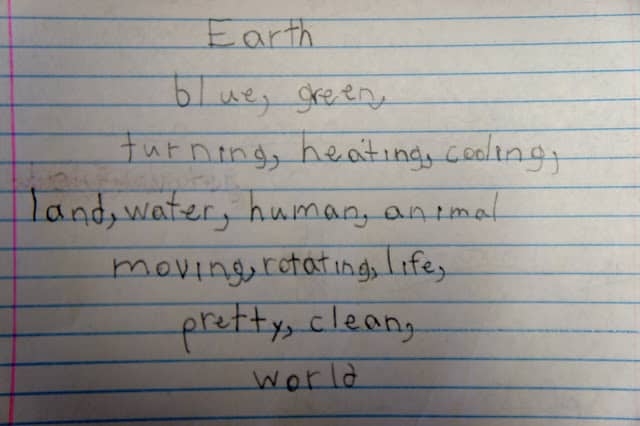 Earth
blue, green,
turning, heating, cooling,
land, water, human, animal
moving, rotating, life,
pretty, clean,
world